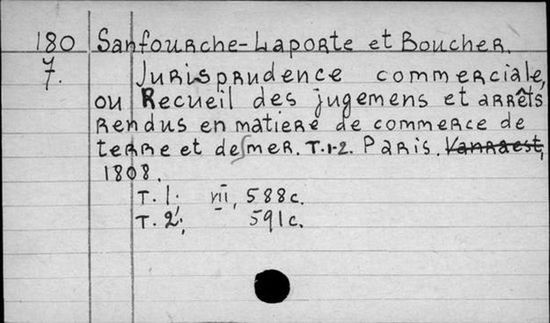 180 Sanfourche-Laporte et Boucher.
7. Jurisprudence commerciale,
ou Recueil des jugemens et arrêts
rendus en matiere de commerce de
terre et de mer. T.1-2. Paris.
1808.
T. 1; VII, 588c.
T. 2; 591c.